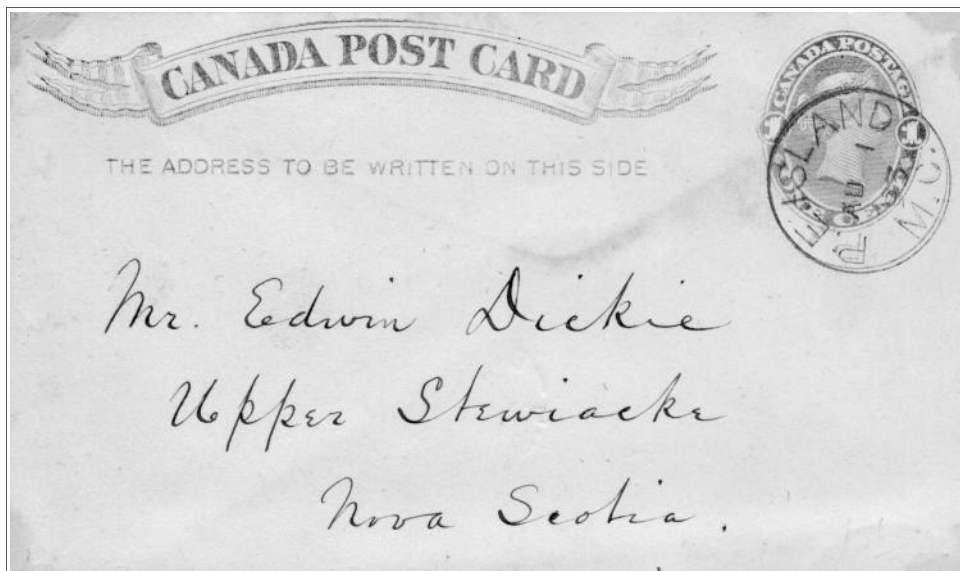 CANADA POST CARD
CANADA POSTAGE
1
THE ADDRESS TO BE WRITTEN ON THIS SIDE
LAND
AU 1
M.C.
Mr. Edwin Dickie
Upper Stewiacke
Nova Scotia.